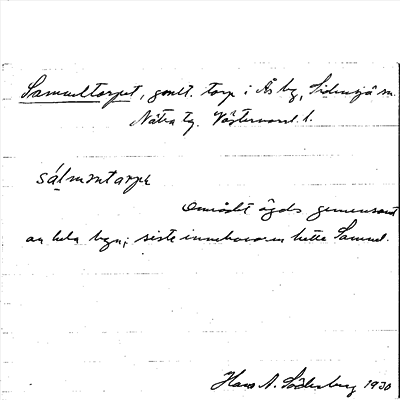 Samueltorpet, gmlt. torp i Ås by, Sidensjö sn.
Nätra tg. Västernorrl. l.
sálmmtarpe
Området ägdes gemensamt
av hela byn; siste innehavaren hette Samuel.
Hans N. Söderberg 1930